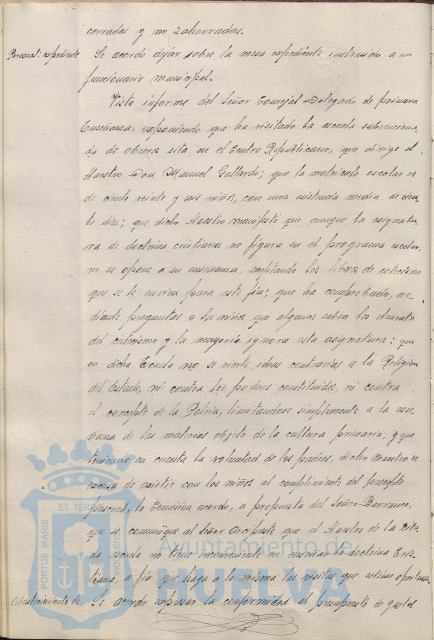 cerrados y no zahorradas.
Personal: expediente Se acordó dejar sobre la mesa expediente instruido a un
funcionario municipal.
Visto informe del Señor Concejal-Delegado de primera
Enseñanza, exponiendo que ha visitado la escuela subvenciona
da de obreros sita en el Centro Republicano, que dirige el
Maestro Don Manuel Gallardo; que la matrícula escolar es
de ciento veinte y seis niños, con una asistencia media de cien
to diez; que dicho Maestro manifestó que aunque la asignatu
ra de doctrina cristiana no figura en el programa escolar,
no se opone a su enseñanza, facilitando los libros de catecismo
que se le envien para este fin; que ha comprobado, me
diante preguntas a los niños que algunos saben los elementos
del catecismo y la mayoría ignora esta asignatura; que
en dicha Escuela no se vierte ideas contrarias a la Religion
del Estado, ni contra los poderes constituidos, ni contra
el concepto de la Patria, limitandose simplemente a la ense
ñanza de las materias objeto de la cultura primaria; y que
teniendo en cuenta la voluntad de los padres, dicho Maestro se
excusa de asistir con los niños al cumplimiento del precepto
pascual, la Comisión acordó, a propuesta del Señor Barranco,
que se comunique al Señor Arcipreste que el Maestro de la cita
da escuela no tiene inconveniente en enseñar la doctrina Cris
tiana, a fin que haga a la misma las visitas que estime oportunas.
Abastecimiento de Se acordó expresar la conformidad al presupuesto de gastos
ET TERRÆ
PORTUS MARIS
Ayuntamiento de
HUELVA